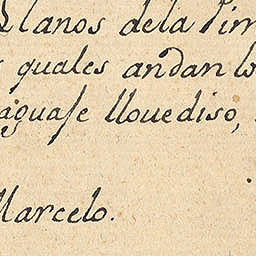 Llanos dela Pim
quales andan lo
aguase llouediso,
Marcelo.